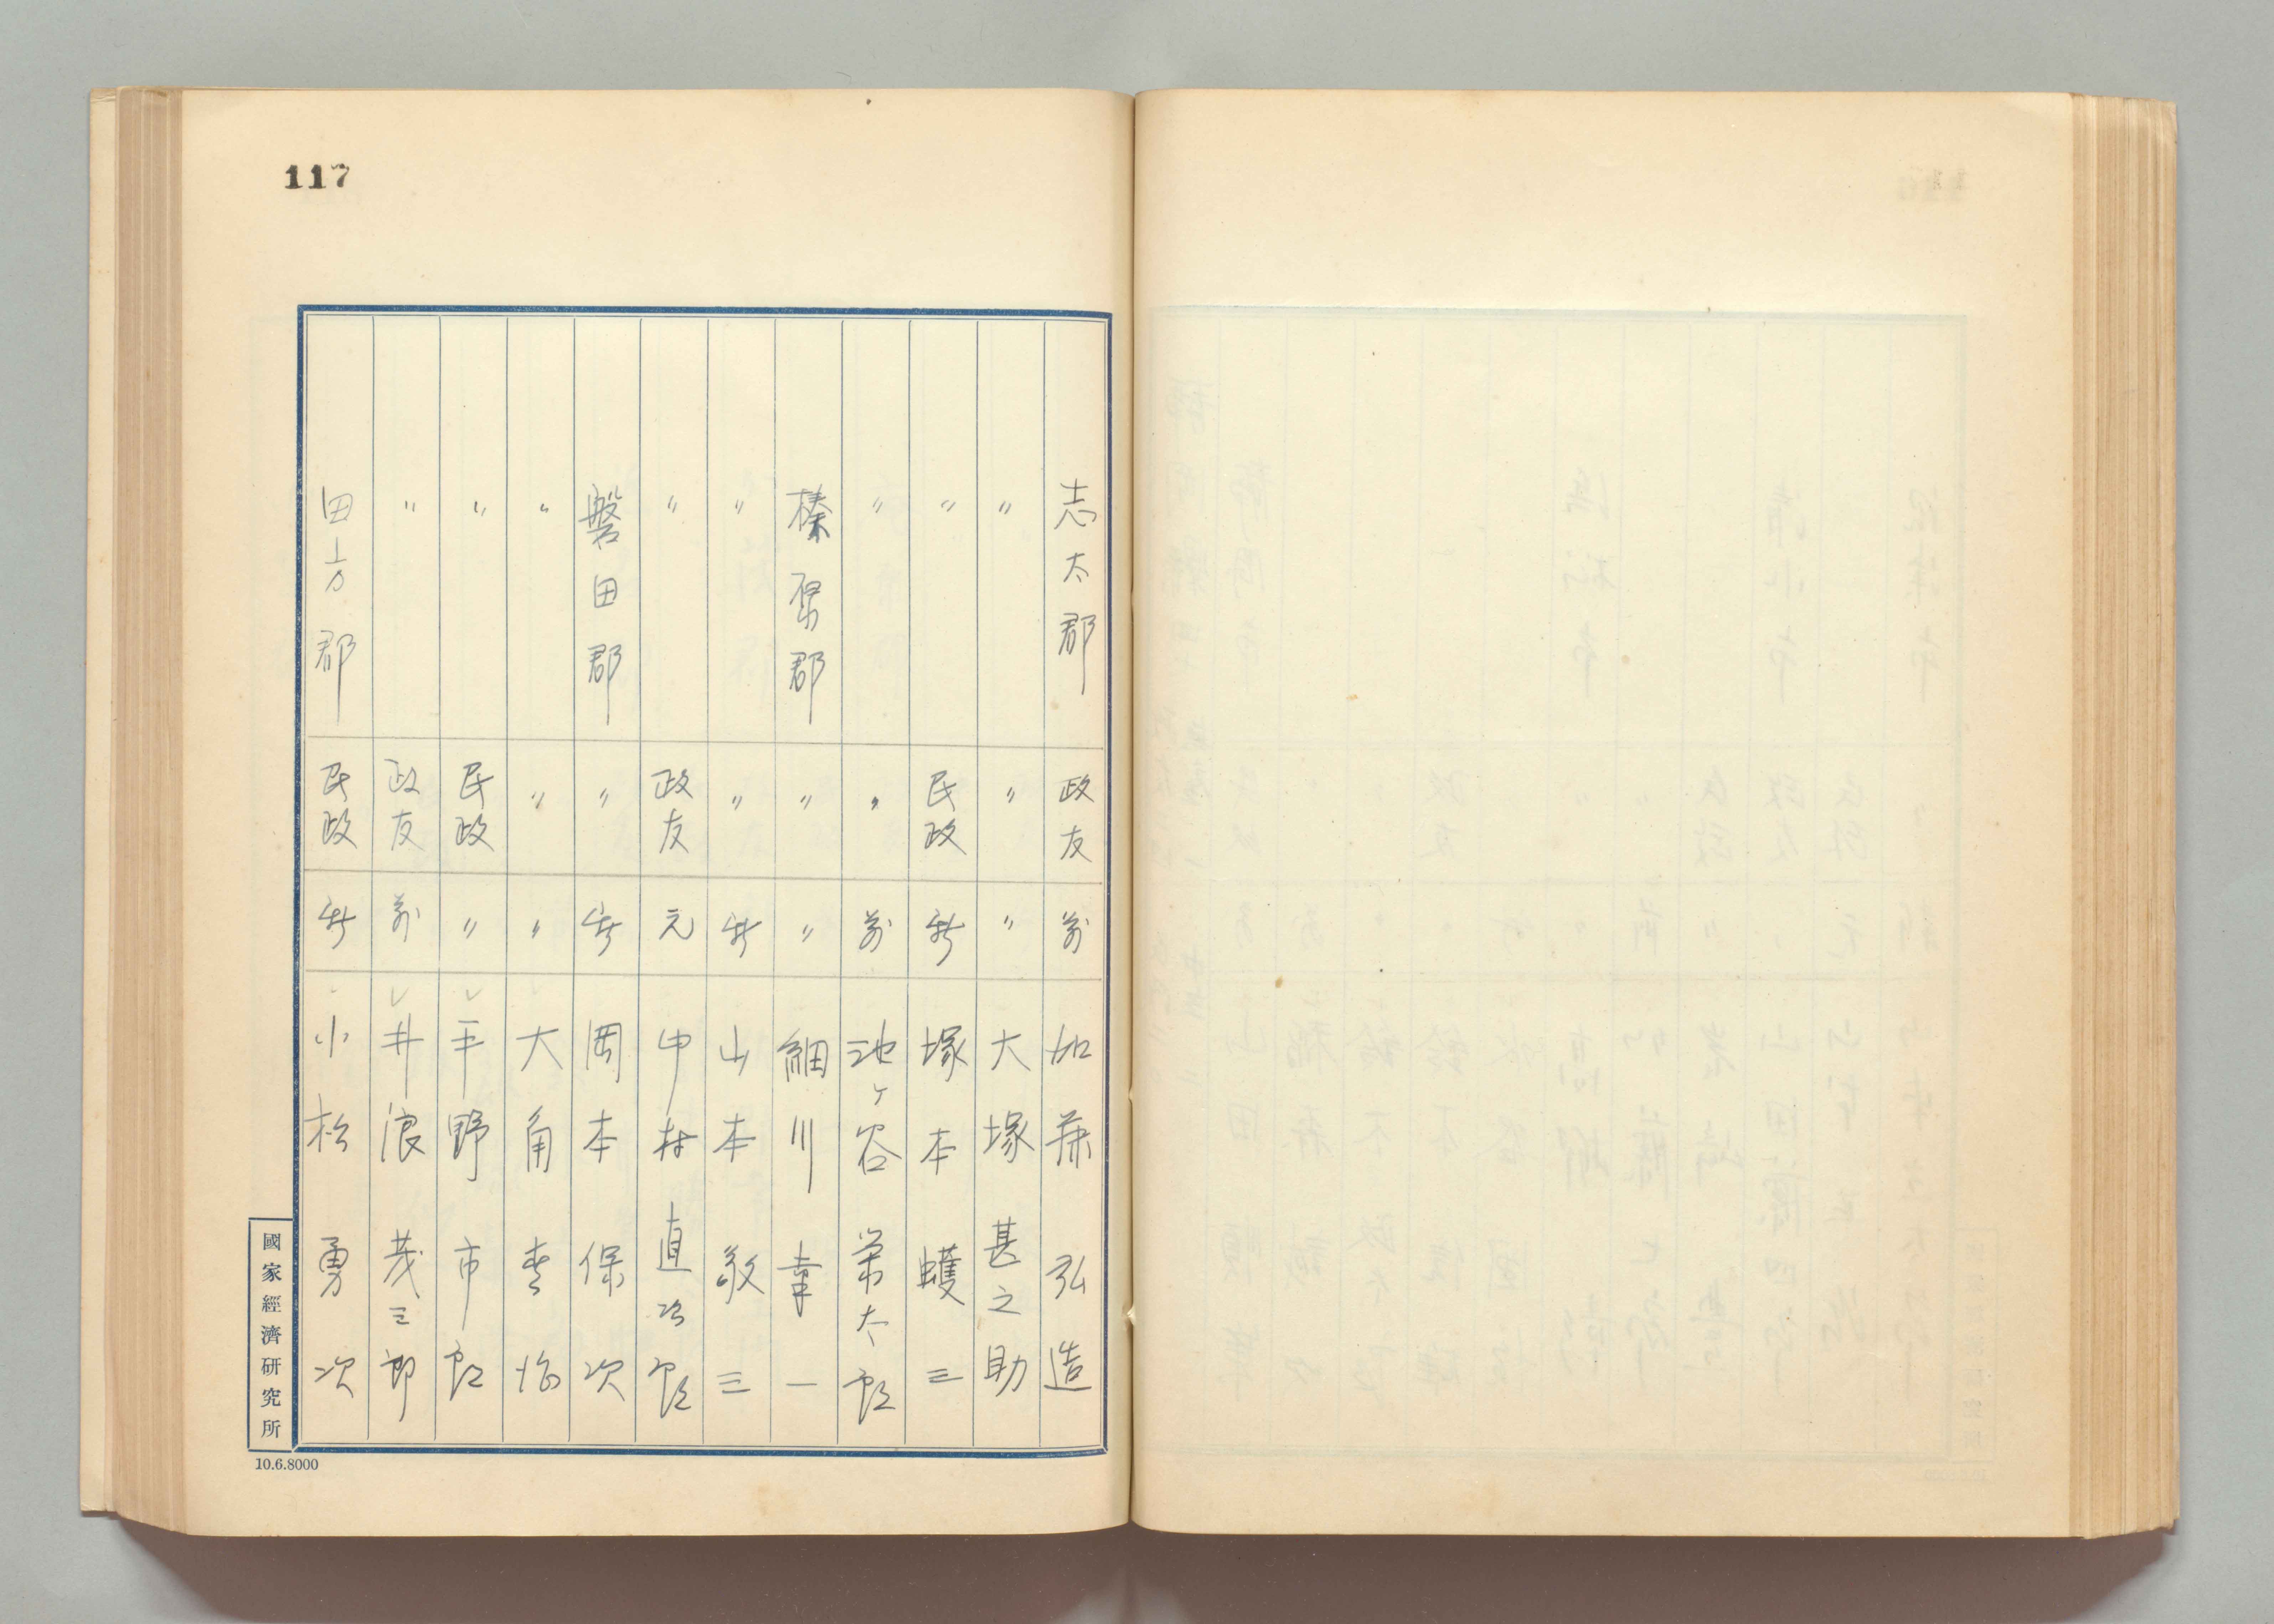 117
志太郡 政友 前 加藤弘造
〃 〃 〃 大塚甚之助
〃 民政 新 塚本蠖三
〃 〃 前 池ヶ谷榮太郎
榛原郡 〃 〃 細川幸一
〃 〃 新 山本敬三
〃 政友 元 中村直次郎
磐田郡 〃 新 岡本保次
〃 〃 〃 大角
〃 民政 〃 平野市郎
〃 政友 前 井浪茂三郎
田方郡 民政 新 小松勇次
國家經濟研究所
10.6.8000